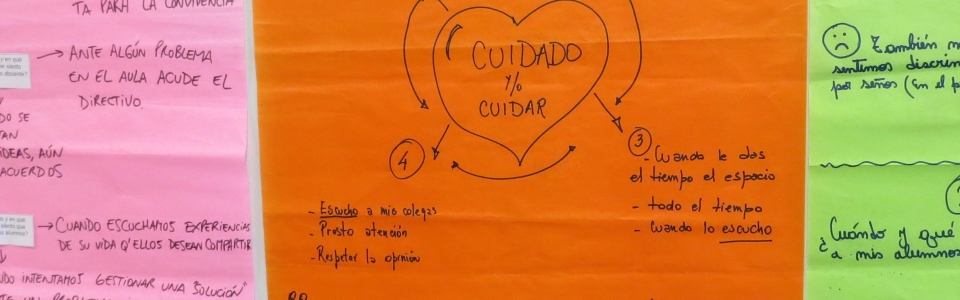 TA PARA LA CONVIVENCIA
→ ANTE ALGÚN PROBLEMA
EN EL AULA ACUDE EL
DIRECTIVO.
DO SE
TAN
IDEAS, AÚN
ACUERDOS
→ CUANDO ESCUCHAMOS EXPERIENCIAS
DE SU VIDA Q' ELLOS DESEAN COMPARTIR
NDO INTENTAMOS GESTIONAR UNA "SOLUCIÓN"
CUIDADO
y/o
CUIDAR
4
- Escucho a mis colegas
- Presto atención
- Respetar la opinión
3
- Cuando le das
el tiempo el espacio
- todo el tiempo
- Cuando lo escucho
También
sentimos discrim
por señas (En el p
¿Cuándo y qué
a mis alumnos